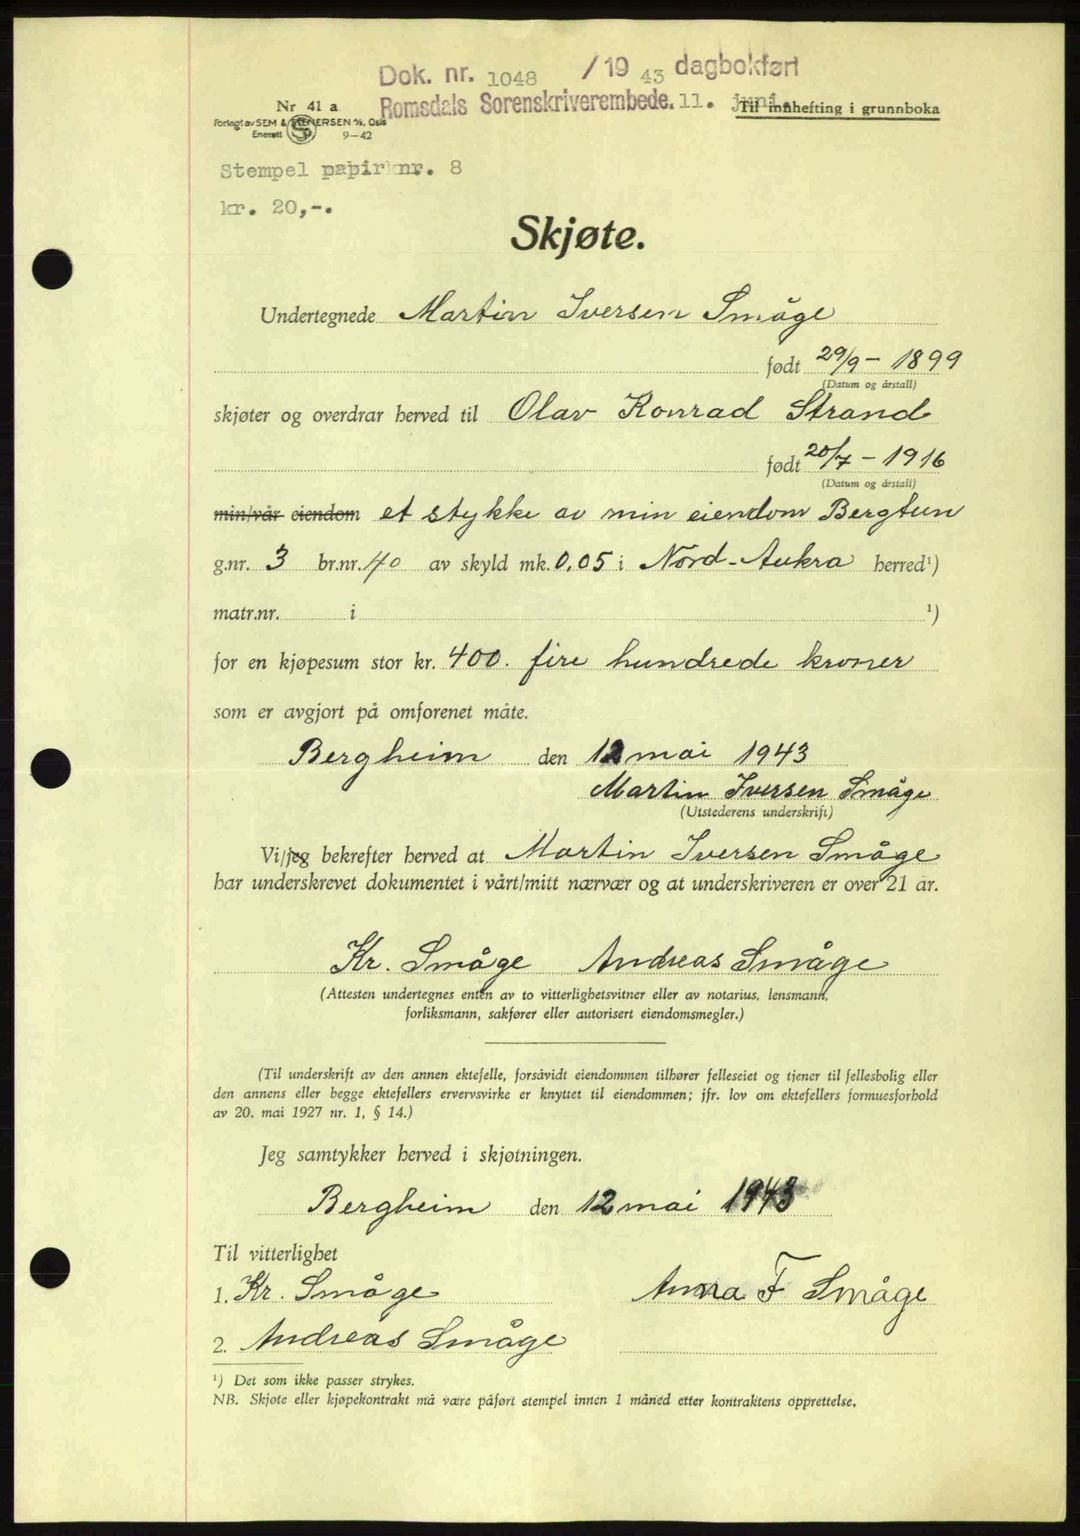 Dok. nr. 1048 /19 43 dagbokført
Romsdals Sorenskriverembede. 11. juni.
Nr 41 a
Til innhefting i grunnboka
Forlagt av SEM & STENERSEN A/S, Oslo
Enerett 9-42
Stempel papir nr. 8
kr. 20,-.
Skjøte.
Undertegnede Martin Iversen Småge
født 29/9 - 1899
(Datum og årstall)
skjøter og overdrar herved til Olav Konrad Strand
født 20/7 - 1916
(Datum og årstall)
min/vår eiendom et stykke av min eiendom Bergtun
g.nr. 3 br.nr. 40 av skyld mk. 0,05 i Nord-Aukra herred¹)
matr.nr. i ¹)
for en kjøpesum stor kr. 400. fire hundrede kroner
som er avgjort på omforenet måte.
Bergheim den 12 mai 1943
Martin Iversen Småge
(Utstederens underskrift)
Vi/jeg bekrefter herved at Martin Iversen Småge
har underskrevet dokumentet i vårt/mitt nærvær og at underskriveren er over 21 år.
Kr. Småge Andreas Småge
(Attesten undertegnes enten av to vitterlighetsvitner eller av notarius, lensmann,
forliksmann, sakfører eller autorisert eiendomsmegler.)
(Til underskrift av den annen ektefelle, forsåvidt eiendommen tilhører felleseiet og tjener til fellesbolig eller
den annens eller begge ektefellers ervervsvirke er knyttet til eiendommen; jfr. lov om ektefellers formuesforhold
av 20. mai 1927 nr. 1, § 14.)
Jeg samtykker herved i skjøtningen.
Bergheim den 12 mai 1943
Til vitterlighet
1. Kr. Småge Anna F Småge
2. Andreas Småge
¹) Det som ikke passer strykes.
NB. Skjøte eller kjøpekontrakt må være påført stempel innen 1 måned etter kontraktens opprettelse.